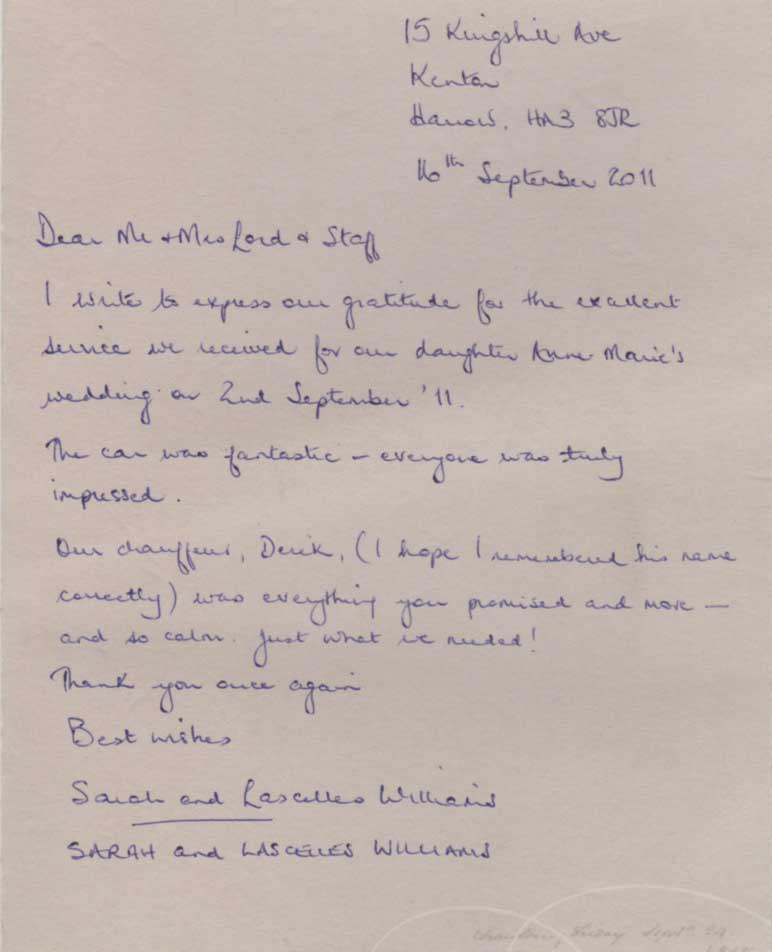 15 Kingshill Ave
Kenton
Harrow, HA3 8JR
16th September 2011
Dear Mr & Mrs Lord & Staff
I write to express our gratitude for the excellent
service we received for our daughter Anne Marie's
wedding on 2nd September '11.
The car was fantastic – everyone was truly
impressed.
Our chauffeur, Derik, (I hope I remembered his name
correctly) was everything you promised and more –
and so calm. Just what we needed!
Thank you once again
Best wishes
Sarah and Lascelles Williams
SARAH and LASCELLES WILLIAMS